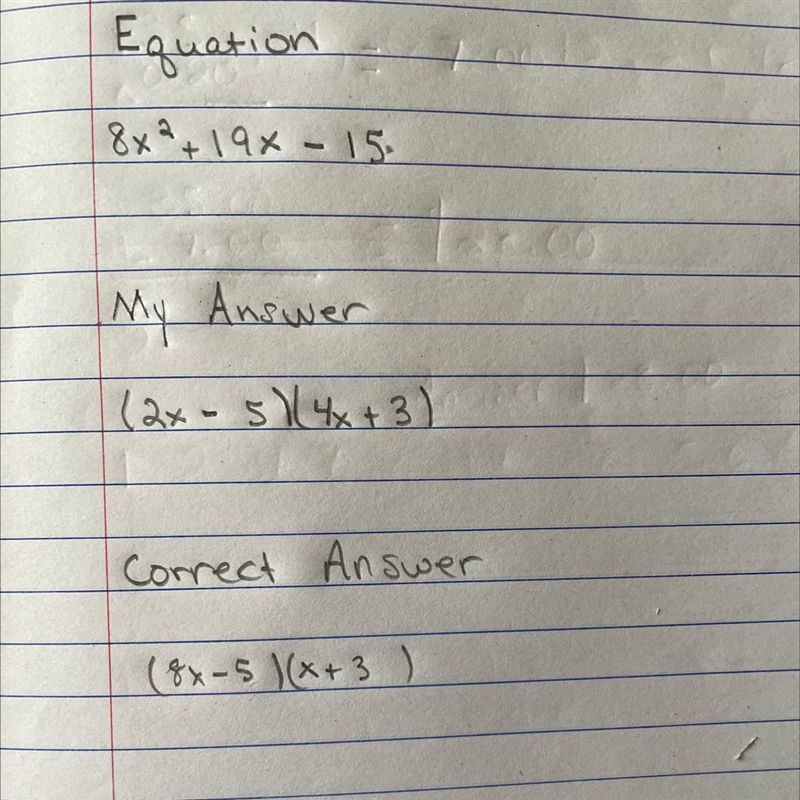 Equation
8x² + 19x - 15.
My Answer
(2x - 5)(4x + 3)
Correct Answer
(8x - 5)(x + 3)